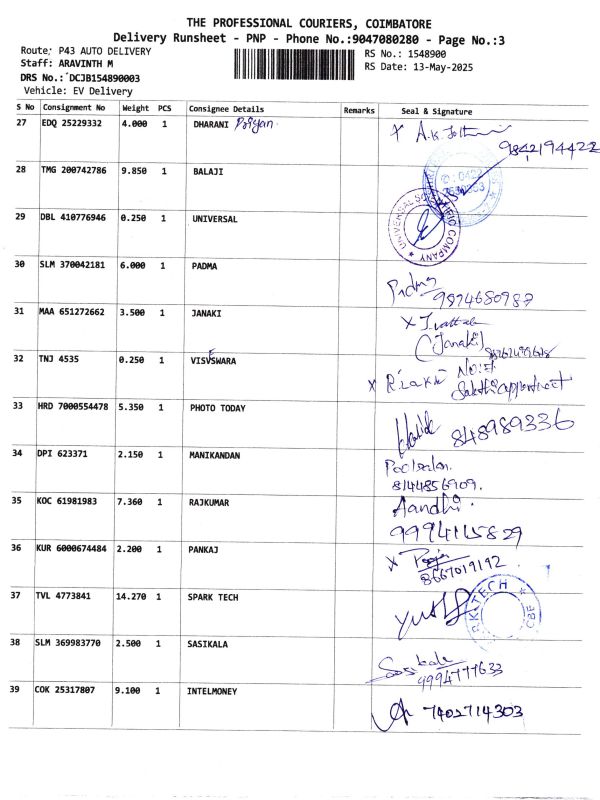 THE PROFESSIONAL COURIERS, COIMBATORE
Delivery Runsheet - PNP - Phone No.:9047080280 - Page No.:3
Route: P43 AUTO DELIVERY
RS No.: 1548900
Staff: ARAVINTH M
RS Date: 13-May-2025
DRS No.: DCJB154890003
Vehicle: EV Delivery
S No Consignment No Weight PCS Consignee Details Remarks Seal & Signature
27 EDQ 25229332 4.000 1 DHARANI Priyan
9842194422
28 TMG 200742786 9.850 1 BALAJI
29 DBL 410776946 0.250 1 UNIVERSAL
UNIVERSAL SCIENTIFIC COMPANY
30 SLM 370042181 6.000 1 PADMA
Padma
9874680987
31 MAA 651272662 3.500 1 JANAKI
(Janaki)
32 TNJ 4535 0.250 1 VISVESWARA
33 HRD 7000554478 5.350 1 PHOTO TODAY
848989336
34 DPI 623371 2.150 1 MANIKANDAN
8144856909.
35 KOC 61981983 7.360 1 RAJKUMAR
Aandhi
9994115829
36 KUR 6000674484 2.200 1 PANKAJ
x Pooja
8667019192
37 TVL 4773841 14.270 1 SPARK TECH
RK TECH
CBE
38 SLM 369983770 2.500 1 SASIKALA
Sasikala
9994777633
39 COK 25317807 9.100 1 INTELMONEY
7402714303